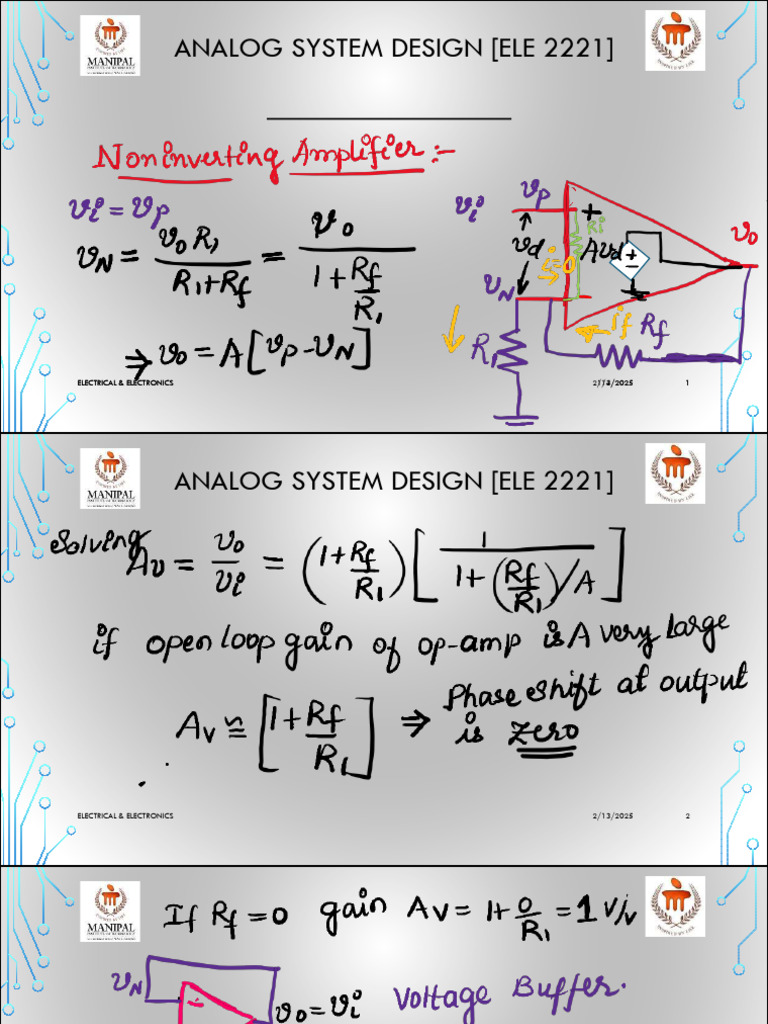 MANIPAL
ANALOG SYSTEM DESIGN [ELE 2221]
Noninverting Amplifier :-
vi = vp
vN = v0 R1 / R1+Rf = v0 / 1 + Rf/R1
⇒ v0 = A[vp - vN]
vi vp + Ri vd i=0 Avd + - v0
vN if Rf
R1
ELECTRICAL & ELECTRONICS 1
MANIPAL
ANALOG SYSTEM DESIGN [ELE 2221]
Solving Av = v0/vi = (1+Rf/R1) [1 / 1+(Rf/R1)/A]
if open loop gain of op-amp is A very large
Av ≅ [1+Rf/R1] ⇒ Phase shift at output
is zero
ELECTRICAL & ELECTRONICS 2/13/2025 2
MANIPAL
If Rf = 0 gain Av = 1+ 0/R1 = 1 V/V
vN - v0 = vi Voltage Buffer.